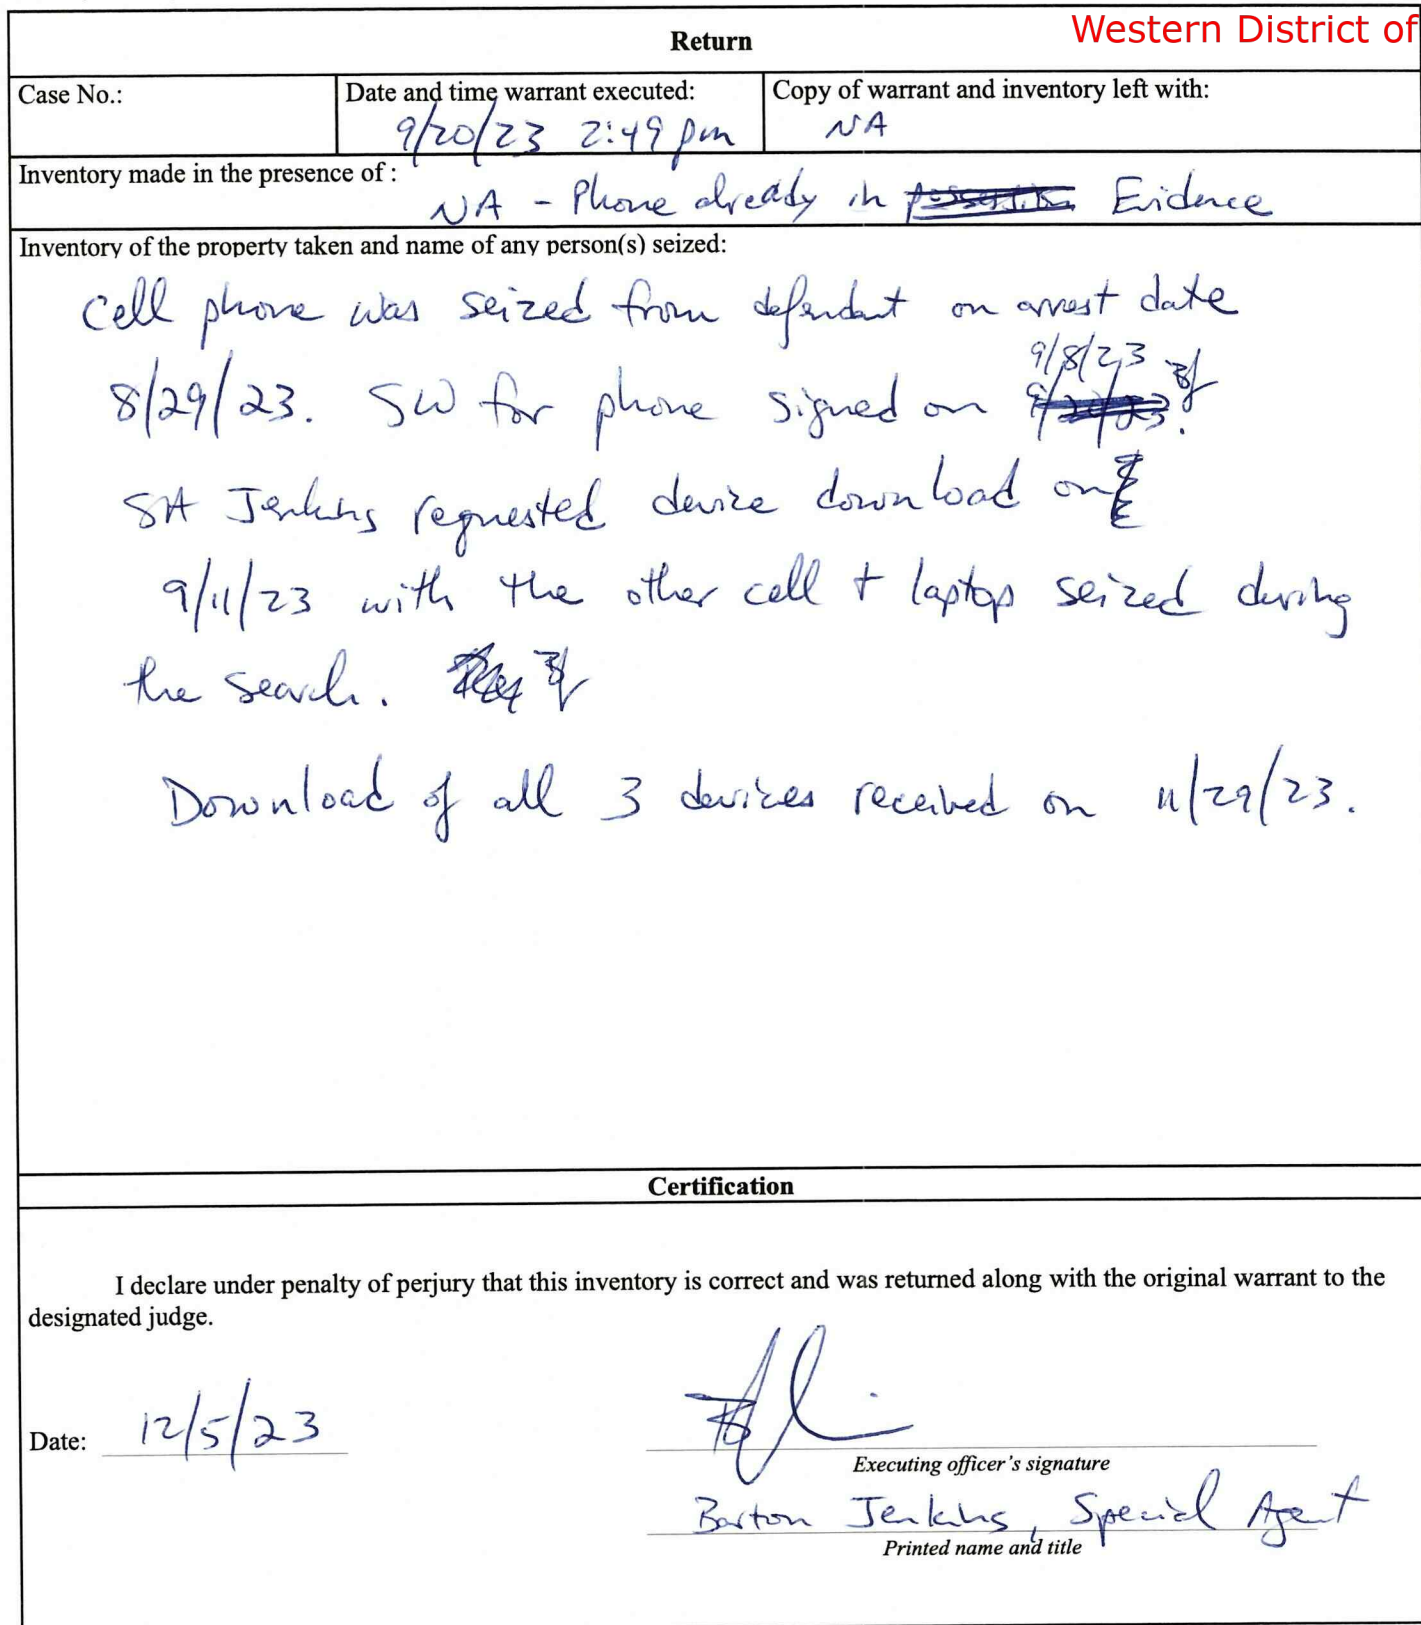 Western District of
Return
Case No.:
Date and time warrant executed:
9/20/23 2:49 pm
Copy of warrant and inventory left with:
NA
Inventory made in the presence of :
NA - Phone already in Evidence
Inventory of the property taken and name of any person(s) seized:
Cell phone was seized from defendant on arrest date
9/8/23
8/29/23. SW for phone signed on
SA Jenkins requested device download on
9/11/23 with the other cell + laptop seized during
the search.
Download of all 3 devices received on 11/29/23.
Certification
I declare under penalty of perjury that this inventory is correct and was returned along with the original warrant to the
designated judge.
Date: 12/5/23
Executing officer's signature
Barton Jenkins, Special Agent
Printed name and title